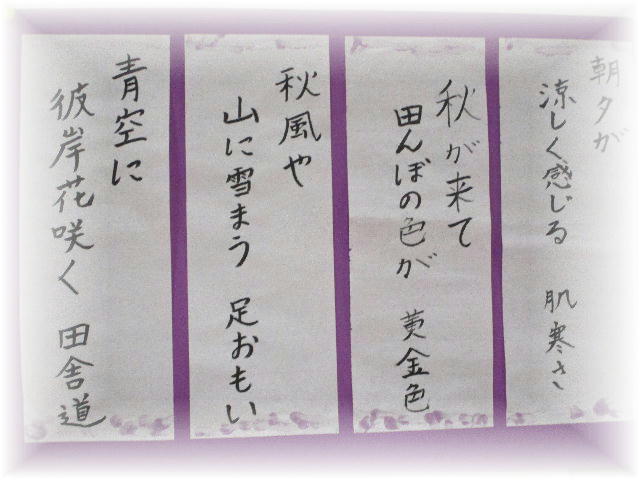 朝夕が
涼しく感じる 肌寒さ
秋が来て
田んぼの色が 黄金色
秋風や
山に雪まう 足おもい
青空に
彼岸花咲く 田舎道